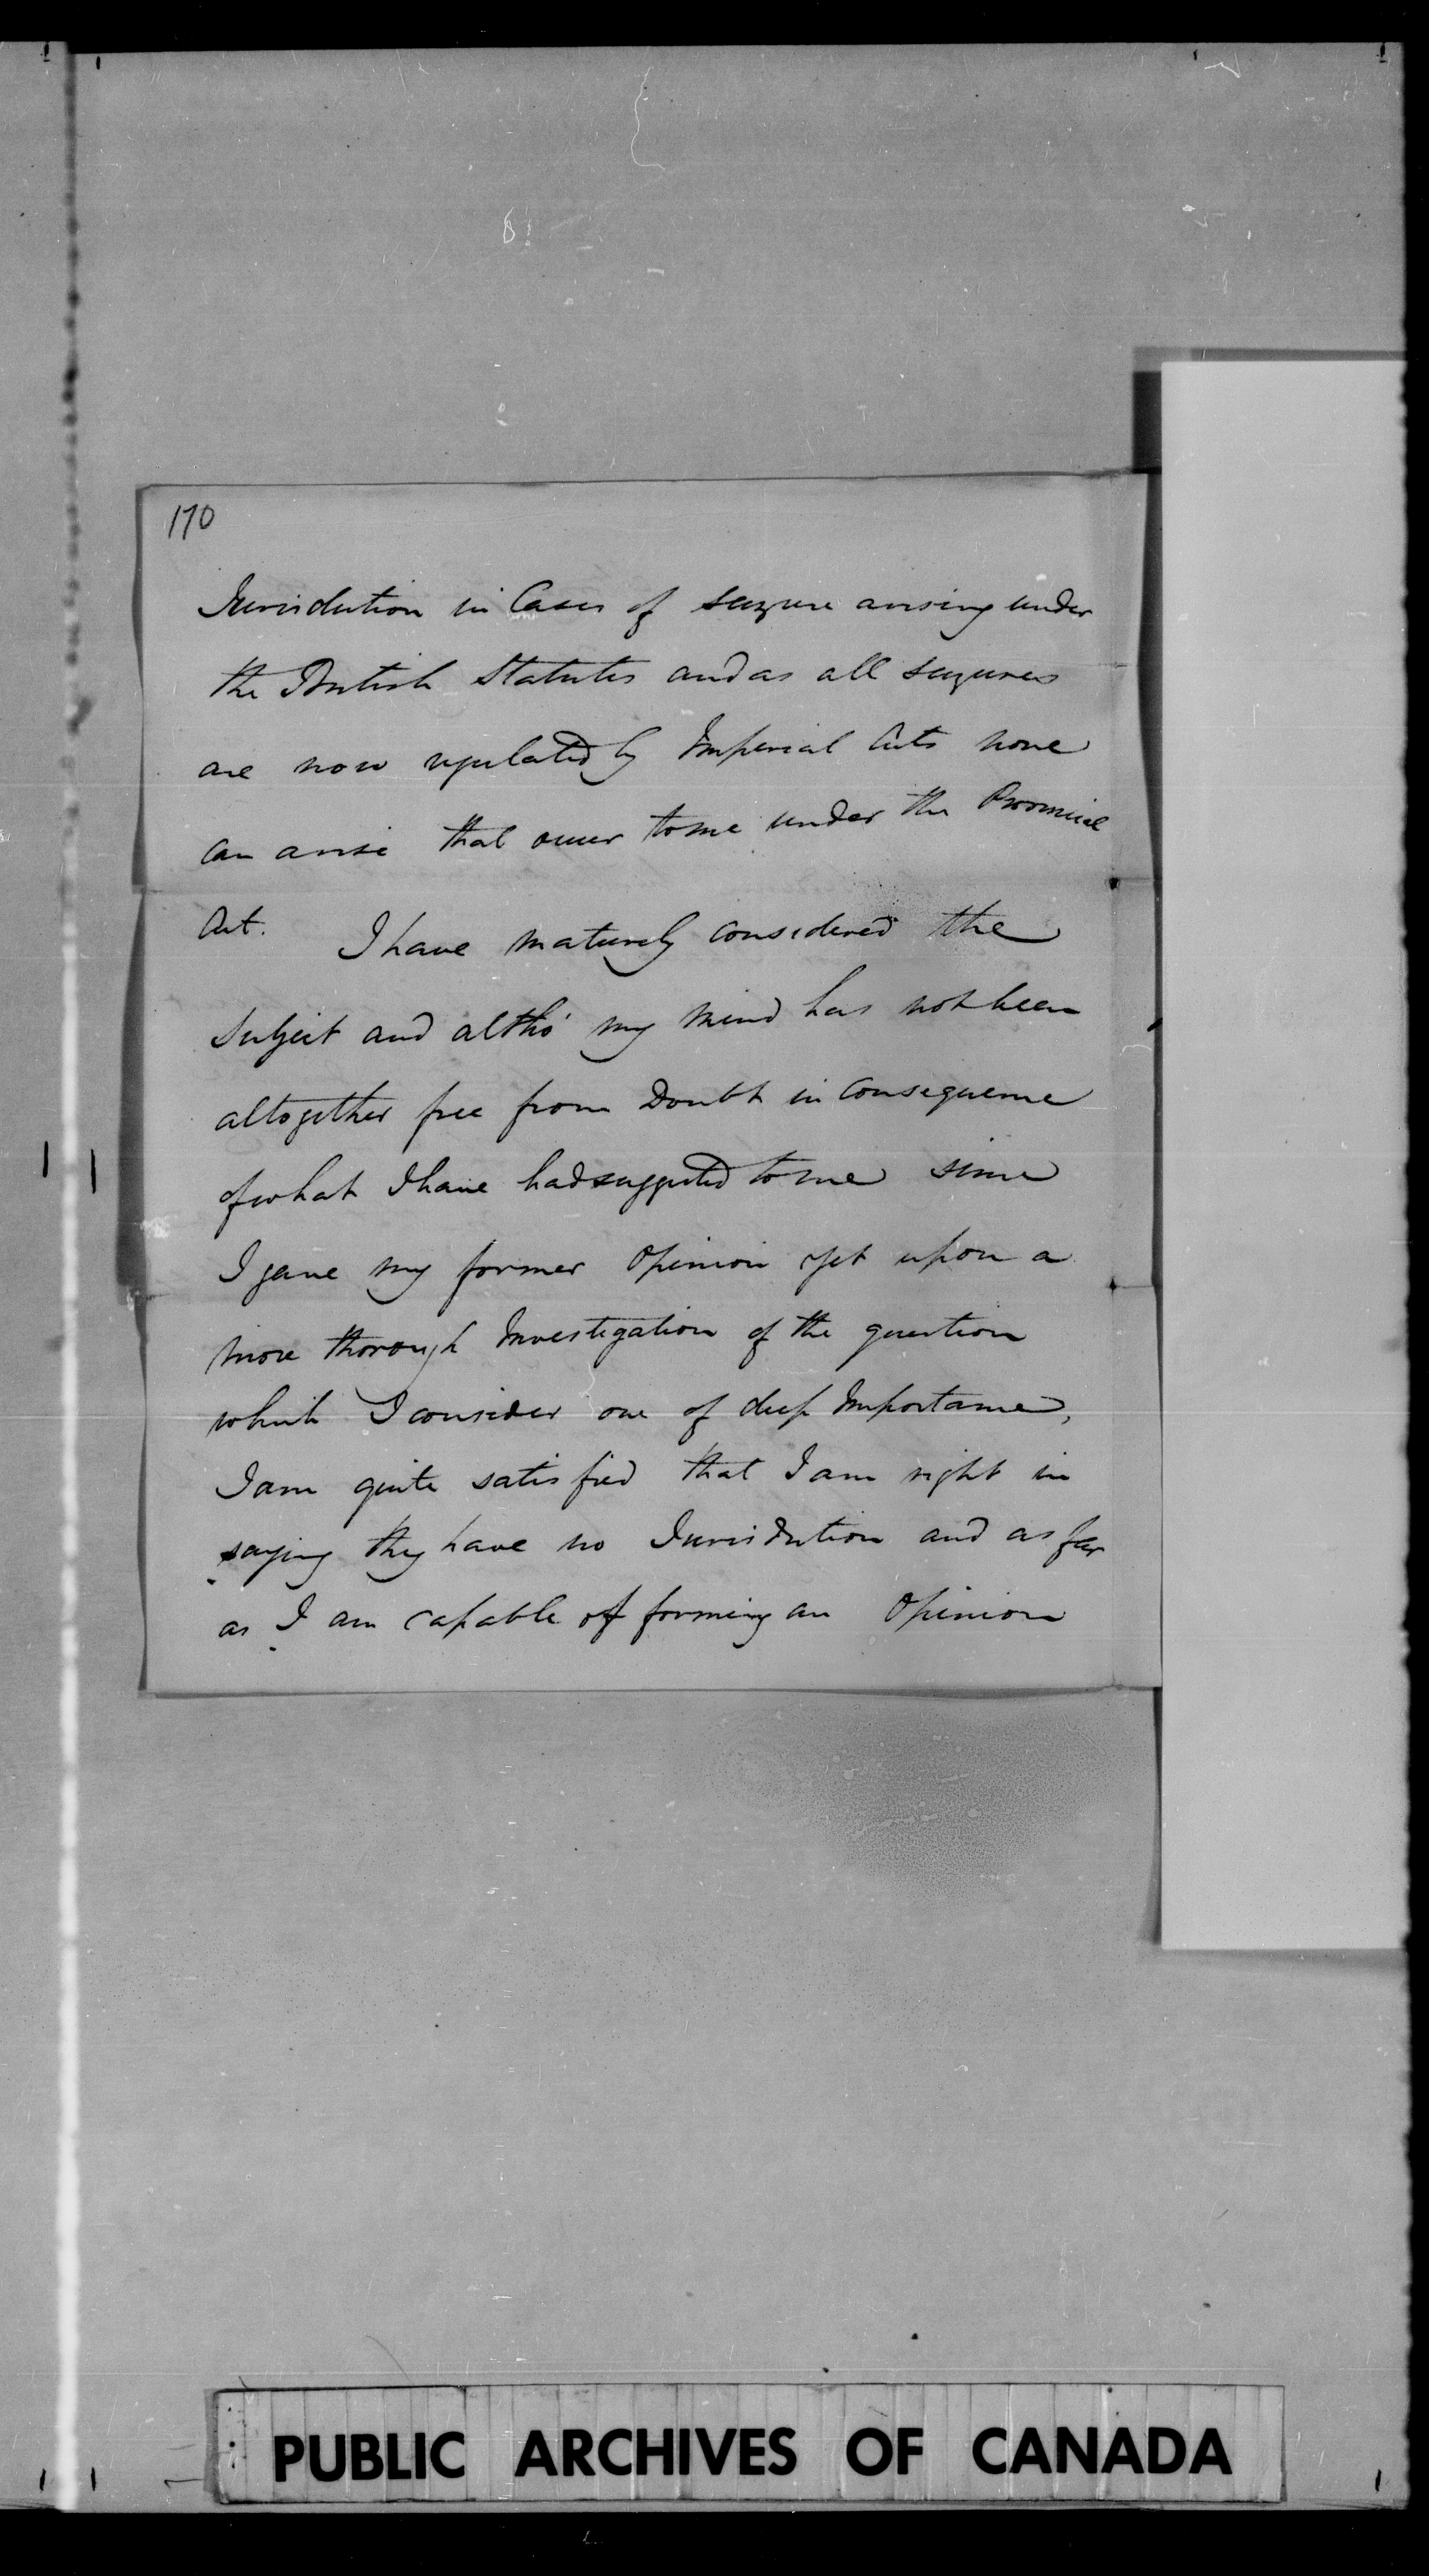 170
Jurisdiction in Cases of seizure arising under
the British Statutes and as all seizures
are now regulated by Imperial Acts none
can arise that occur to me under the Provincial
Act. I have maturely considered the
subject and altho' my mind has not been
altogether free from Doubt in consequence
of what I have had suggested to me since
I gave my former Opinion yet upon a
more thorough Investigation of the question
which I consider one of deep Importance,
I am quite satisfied that I am right in
saying they have no Jurisdiction and as far
as I am capable of forming an Opinion
PUBLIC ARCHIVES OF CANADA